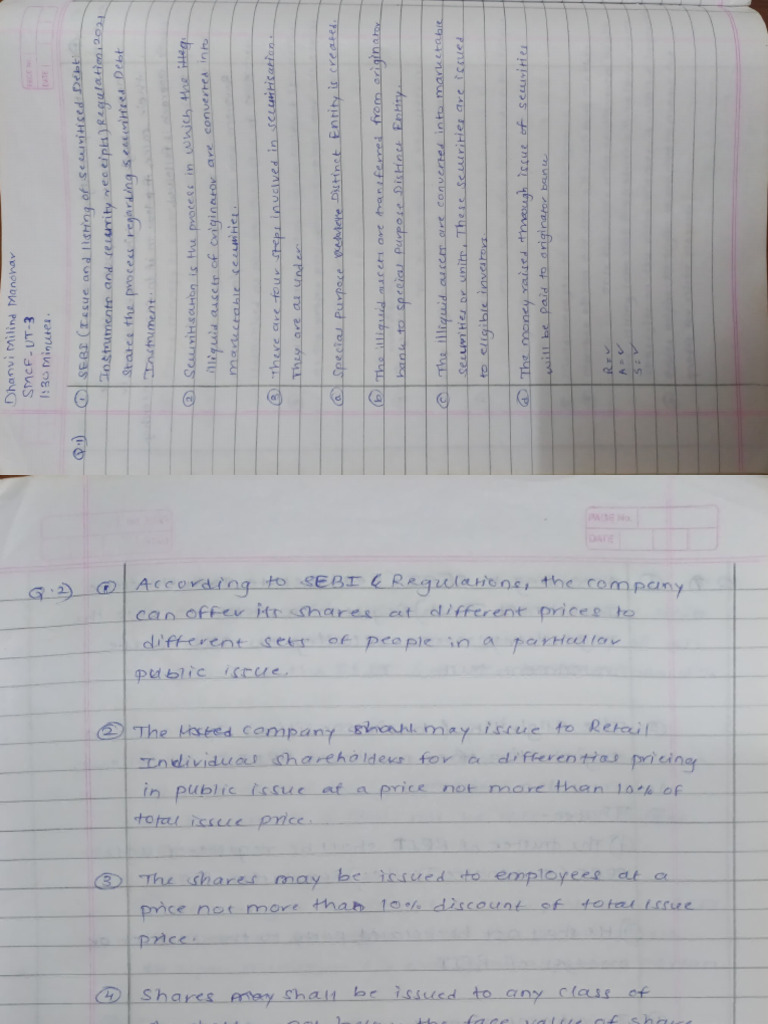 Dhanvi Milind Manohar
SMCF-UT-3
1:30 Minutes.
Q.1) ① SEBI (Issue and listing of securitised Debt
Instruments and security receipts) Regulation, 2021
States the process regarding securitised Debt
Instrument.
② Securitisation is the process in which the
illiquid assets of originator are converted into
marketable securities.
③ There are four steps involved in securitisation.
They are as under
ⓐ Special Purpose Distinct Entity is created.
ⓑ The illiquid assets are transferred from originator
bank to special Purpose Distinct Entity.
ⓒ The illiquid assets are converted into marketable
securities or units. These securities are issued
to eligible investors
ⓓ The money raised through issue of securities
will be paid to originator bank
R=✓
A=✓
S=✓
PAGE No.
DATE
Q.2) ① According to SEBI Regulations, the company
can offer its shares at different prices to
different sets of people in a particular
public issue.
② The company may issue to Retail
Individual shareholders for a differential pricing
in public issue at a price not more than 10% of
total issue price.
③ The shares may be issued to employees at a
price not more than 10% discount of total issue
price.
④ Shares shall be issued to any class of
the face value of share